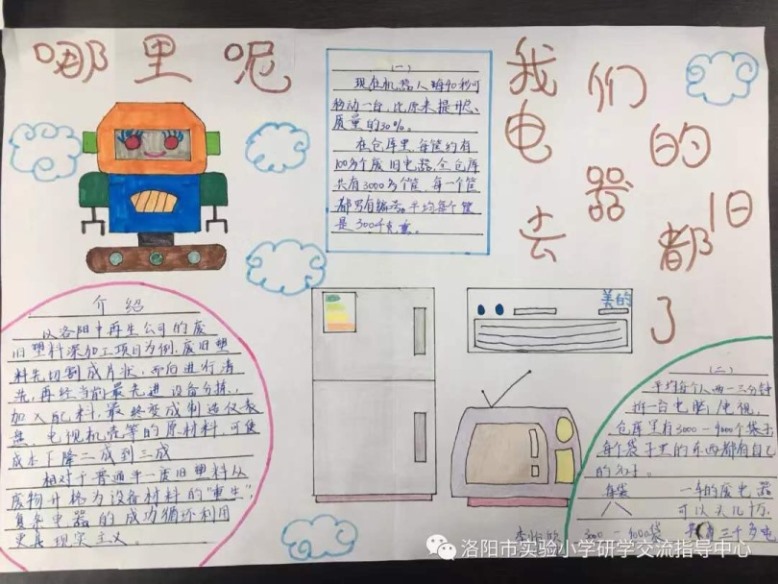 我们的旧
电器都
去了
哪里呢
(一)
现在机器人每40秒可
移动一台,比原来提升
质量的30%。
在仓库里,每筐约有
100多个废旧电器,全仓库
共有3000多个筐,每一个筐
都另有编号。平均每个筐
是300千克重。
美的
介绍
以洛阳中再生公司的废
旧塑料深加工项目为例,废旧塑
料先切割成片状,而后进行清
洗,再经当前最先进设备分拣,
加入配料,最终变成制造仪表
盘、电视机壳等的原材料,可使
成本下降二成到三成
相对于普通单一废旧塑料从
废物升格为设备材料的“重生”,
电器的成功循环利用
更具现实主义。
(二)
平均每个人两-三分钟
拆一台电脑/电视,
仓库里有3000-4000个袋子
每个袋子里的东西都有自己
的
每袋 一车的废电器
八 可以
300-1000袋 三千多吨
洛阳市实验小学研学交流指导中心